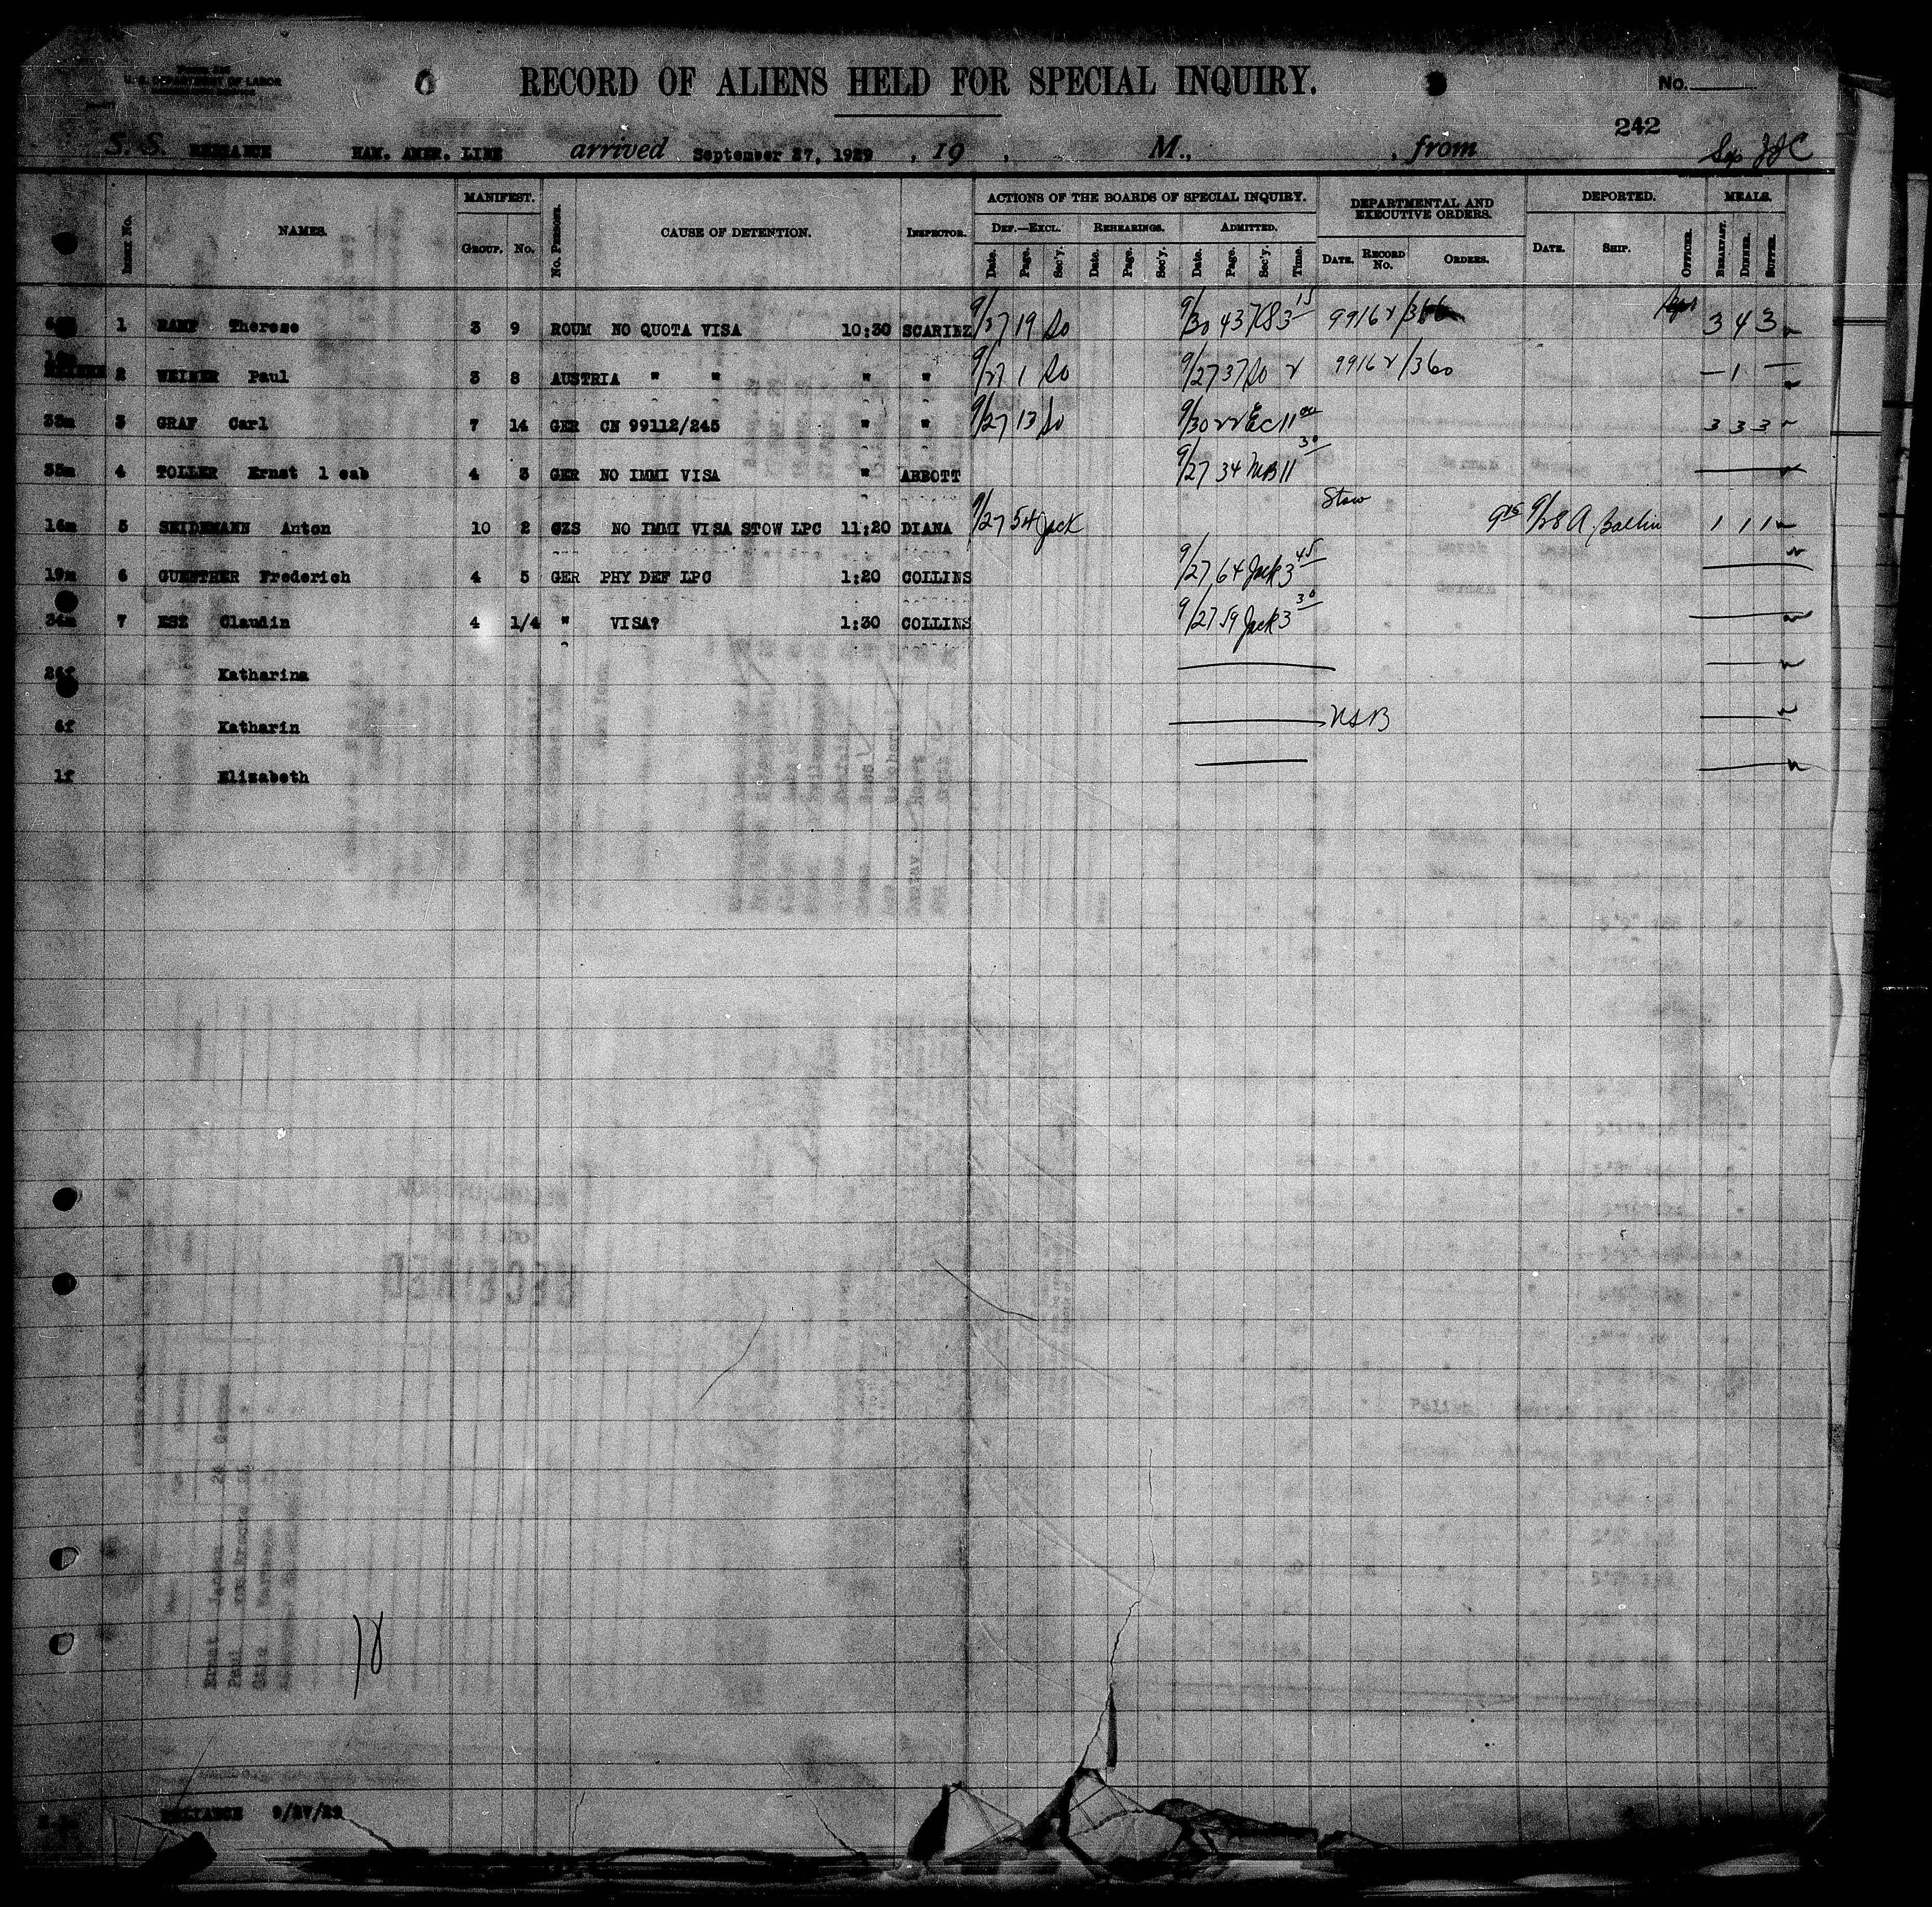 U. S. DEPARTMENT OF LABOR
RECORD OF ALIENS HELD FOR SPECIAL INQUIRY.
No.
242
S. S. RELIANCE HAM. AMER. LINE arrived September 27, 1929 , 19 , M., , from
Index No. NAMES. MANIFEST. GROUP. No. No. PERSONS. CAUSE OF DETENTION. INSPECTOR. ACTIONS OF THE BOARDS OF SPECIAL INQUIRY. DEF.—EXCL. Date. Page. Sec'y. REHEARINGS. Date. Page. Sec'y. ADMITTED. Date. Page. Sec'y. Time. DEPARTMENTAL AND EXECUTIVE ORDERS. DATE. RECORD No. ORDERS. DEPORTED. DATE. SHIP. OFFICER. MEALS. BREAKFAST. DINNER. SUPPER.
1 Therese 3 9 ROUM NO QUOTA VISA 10:30 SCARINZ 9/27 19 So 9/30 43 KS 3 15 3 4 3
2 WEINER Paul 3 8 AUSTRIA " " " " 9/27 1 So 9/27 37 So 2 99162/360 — 1 —
33m 3 GRAF Carl 7 14 GER CN 99112/245 " " 9/27 13 So 9/30 22 EC 11 00 3 3 3
35m 4 TOLLER Ernst 1 cab 4 3 GER NO IMMI VISA " ABBOTT 9/27 34 MB 11 30
16m 5 SEIDEMANN Anton 10 2 CZS NO IMMI VISA STOW LPC 11:20 DIANA 9/27 54 Jack Stow 9/28 A. Ballin 1 1 1
19m 6 GUENTHER Frederich 4 5 GER PHY DEF LPC 1:20 COLLINS 9/27 64 Jack 3 45
34m 7 ESZ Claudin 4 1/4 " VISA? 1:30 COLLINS 9/27 59 Jack 3 30
Katharina
6f Katharin
1f Elizabeth
18
RELIANCE 9/27/29